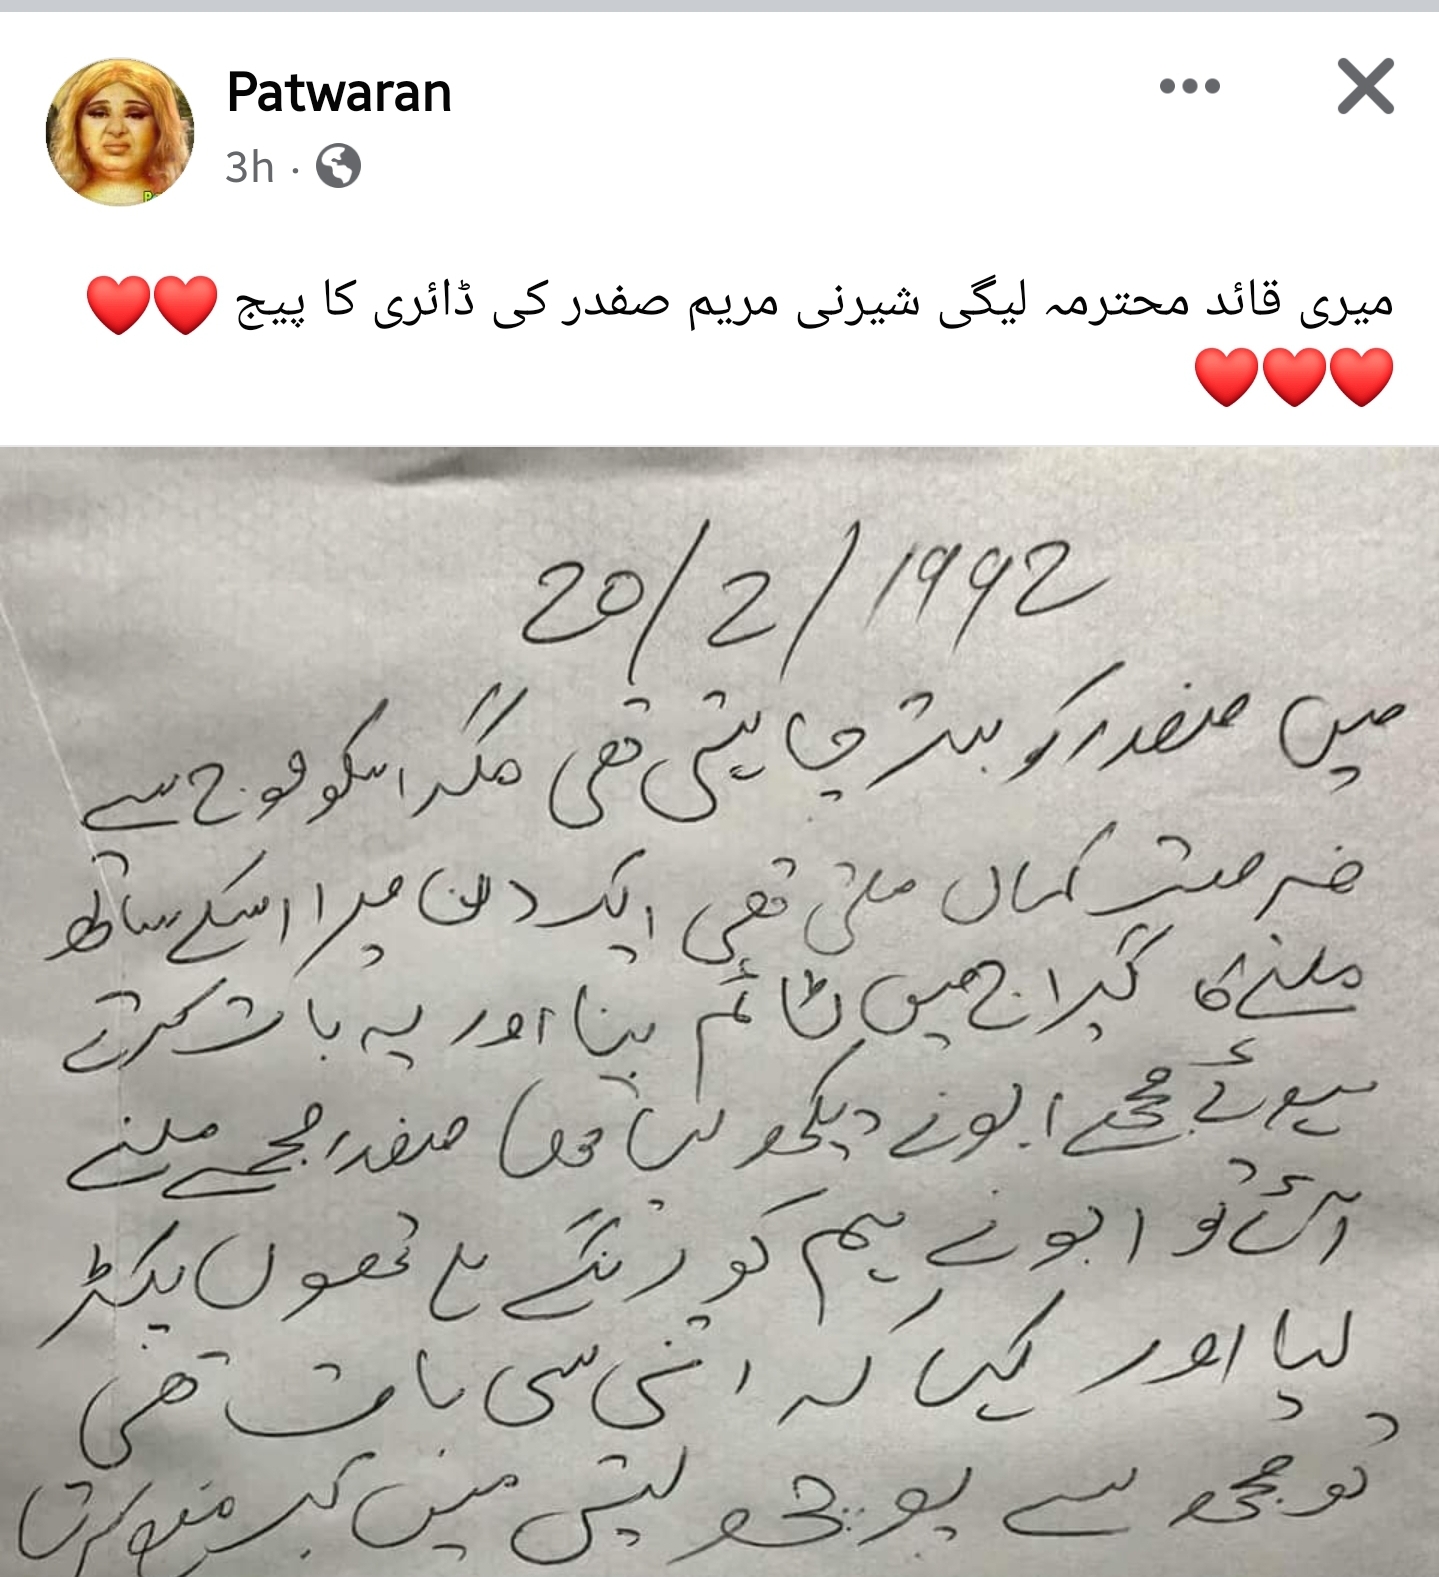 Patwaran
3h ·
میری قائد محترمہ لیگی شیرنی مریم صفدر کی ڈائری کا پیج ❤️❤️
❤️❤️❤️
20/2/1992
میں صفدر کو بہت چاہتی تھی مگر اسکو فوج سے
فرصت کہاں ملتی تھی ایک دن میرا اسکے ساتھ
ملنے کا گیراج میں ٹائم بنا اور یہ بات کرتے
ہوئے مجھے ابو نے دیکھ لیا صفدر مجھے ملنے
آئے تو ابو نے ہم کو رنگے ہاتھوں پکڑ
لیا اور کہا کہ اتنی سی بات تھی
تو مجھ سے پوچھ لیتی میں کب منع کرتا